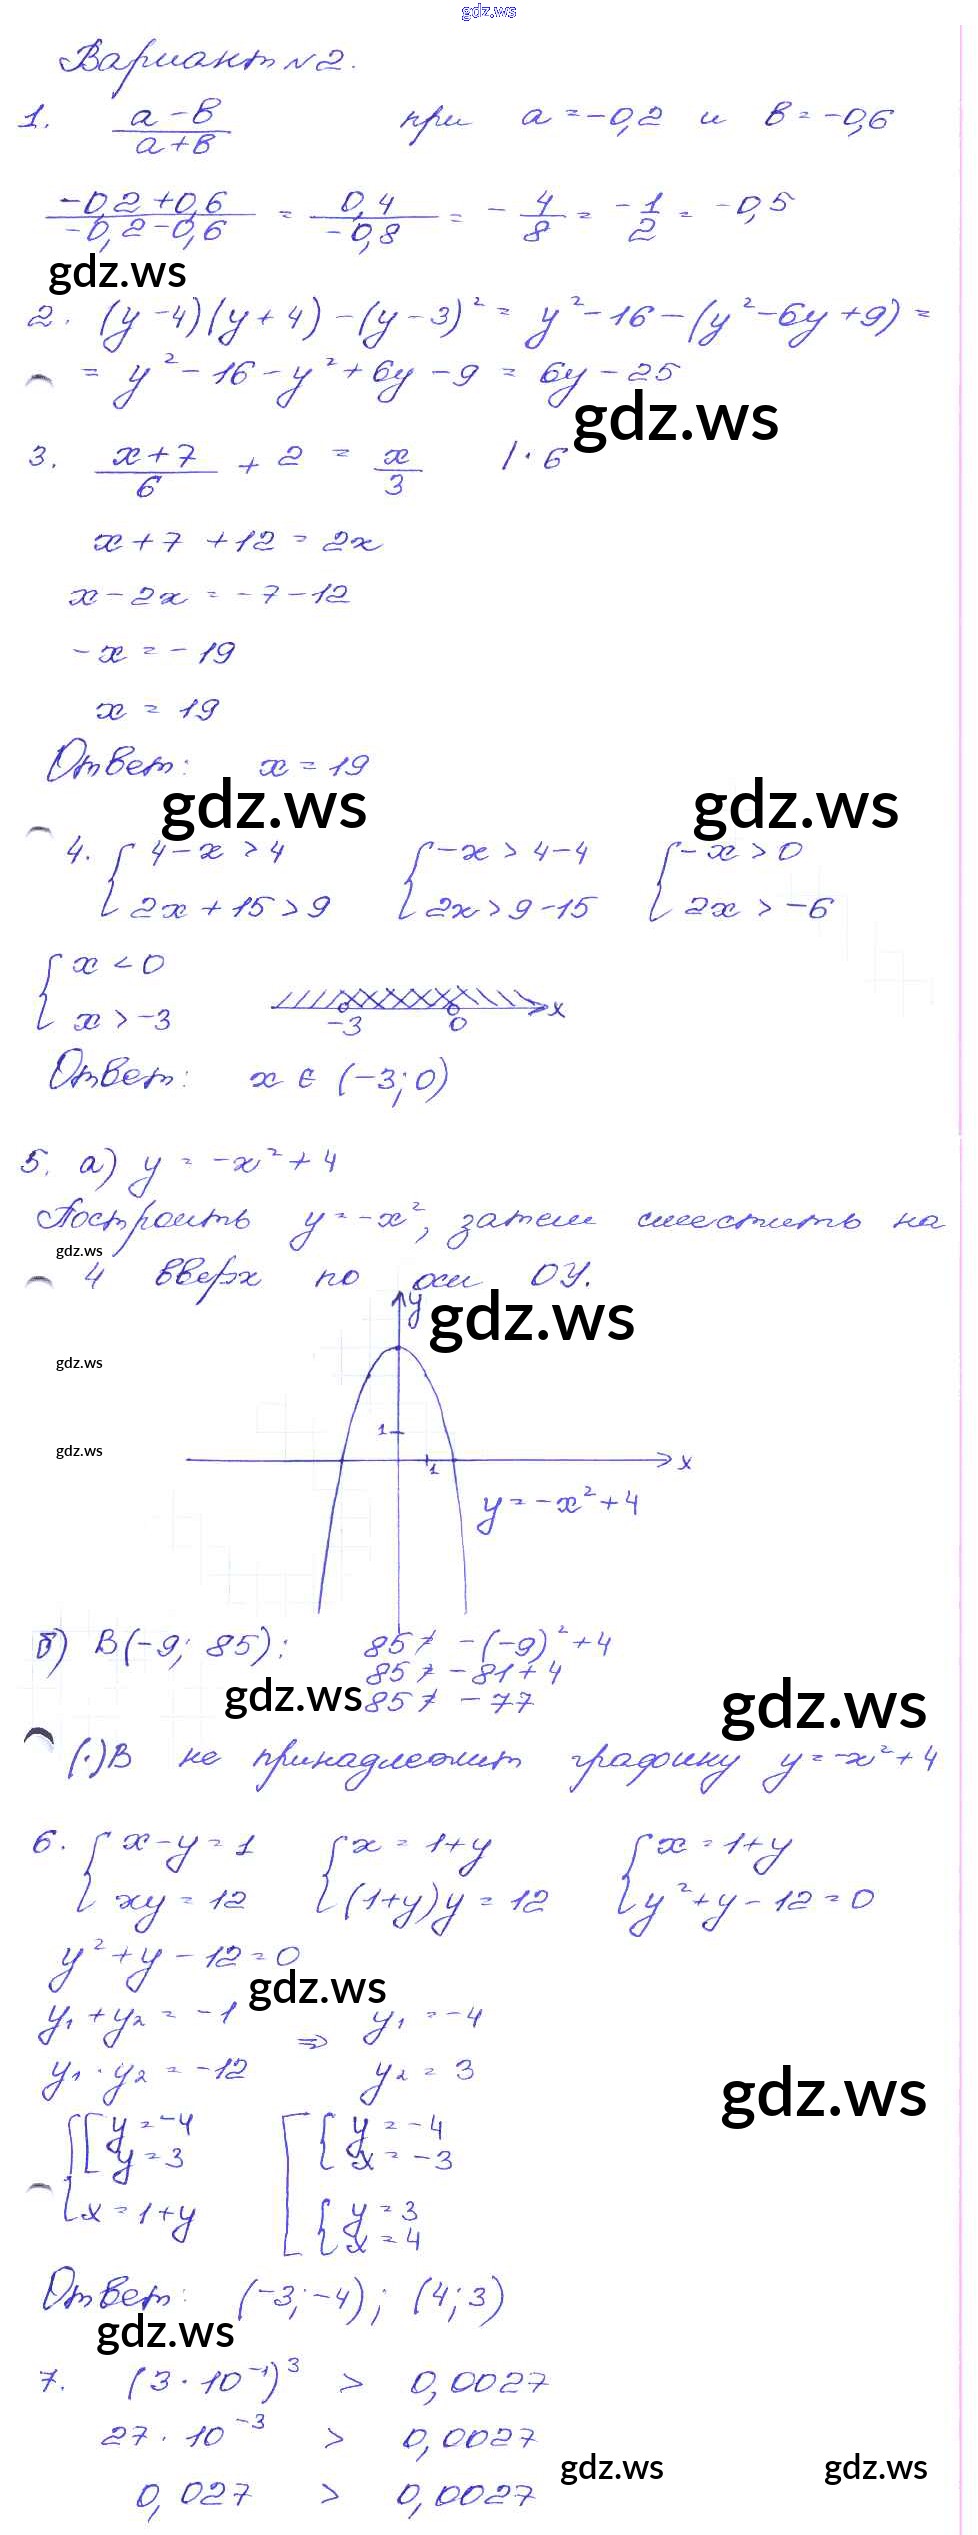 gdz.ws
Вариант №2.
1. (a-в)/(a+в) при a=-0,2 и в=-0,6
(-0,2+0,6)/(-0,2-0,6) = 0,4/(-0,8) = -4/8 = -1/2 = -0,5
gdz.ws
2. (y-4)(y+4)-(y-3)² = y²-16-(y²-6y+9) =
= y²-16-y²+6y-9 = 6y-25
gdz.ws
3. (x+7)/6 + 2 = x/3 |·6
x+7+12=2x
x-2x=-7-12
-x=-19
x=19
Ответ: x=19
gdz.ws gdz.ws
4. { 4-x>4 { -x>4-4 { -x>0
2x+15>9 2x>9-15 2x>-6
{ x<0
x>-3 -3 0 x
Ответ: x∈(-3;0)
5. а) y=-x²+4
Построить y=-x², затем сместить на
gdz.ws
4 вверх по оси OY.
y gdz.ws
gdz.ws
1
gdz.ws
1 x
y=-x²+4
б) B(-9; 85): 85≠-(-9)²+4
85≠-81+4
gdz.ws 85≠-77 gdz.ws
(·)B не принадлежит графику y=-x²+4
6. { x-y=1 { x=1+y { x=1+y
xy=12 (1+y)y=12 y²+y-12=0
y²+y-12=0
gdz.ws
y₁+y₂=-1 ⇒ y₁=-4
y₁·y₂=-12 y₂=3
gdz.ws
{ [ y=-4 [ { y=-4
y=3 x=-3
x=1+y { y=3
x=4
Ответ: (-3;-4); (4;3)
gdz.ws
7. (3·10⁻¹)³ > 0,0027
27·10⁻³ > 0,0027
gdz.ws gdz.ws
0,027 > 0,0027